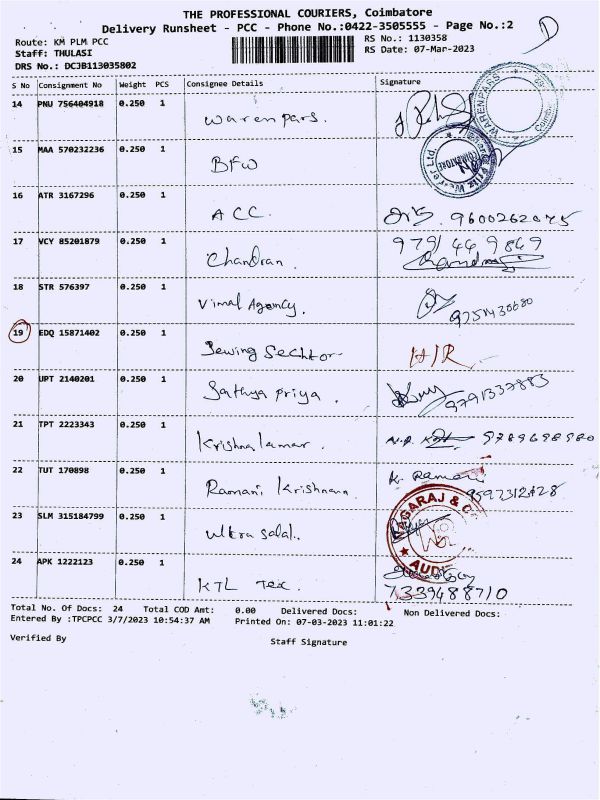 THE PROFESSIONAL COURIERS, Coimbatore
Delivery Runsheet - PCC - Phone No.:0422-3505555 - Page No.:2
D
Route: KM PLM PCC
RS No.: 1130358
Staff: THULASI
RS Date: 07-Mar-2023
DRS No.: DCJB113035802
S No Consignment No Weight PCS Consignee Details Signature
14 PNU 756404918 0.250 1 Warenpars.
WARENPARS
15 MAA 570232236 0.250 1 BFW
COIMBATORE
16 ATR 3167296 0.250 1 ACC. 9600262075
17 VCY 85201879 0.250 1 Chandran. 979144 9849
18 STR 576397 0.250 1 Vimal Agency.
19 EDQ 15871402 0.250 1 Sewing Sechtor HIR
20 UPT 2140201 0.250 1 Sathya priya. 9791337883
21 TPT 2223343 0.250 1 Krishna kumar. 9789698980
22 TUT 170898 0.250 1 Ramani Krishnann K. Ramani
9597312428
23 SLM 315184799 0.250 1 ultra salal. NAGARAJ & CO
AUDI
24 APK 1222123 0.250 1 KTL Tex.
7339488710
Total No. Of Docs: 24 Total COD Amt: 0.00 Delivered Docs: Non Delivered Docs:
Entered By :TPCPCC 3/7/2023 10:54:37 AM Printed On: 07-03-2023 11:01:22
Verified By
Staff Signature